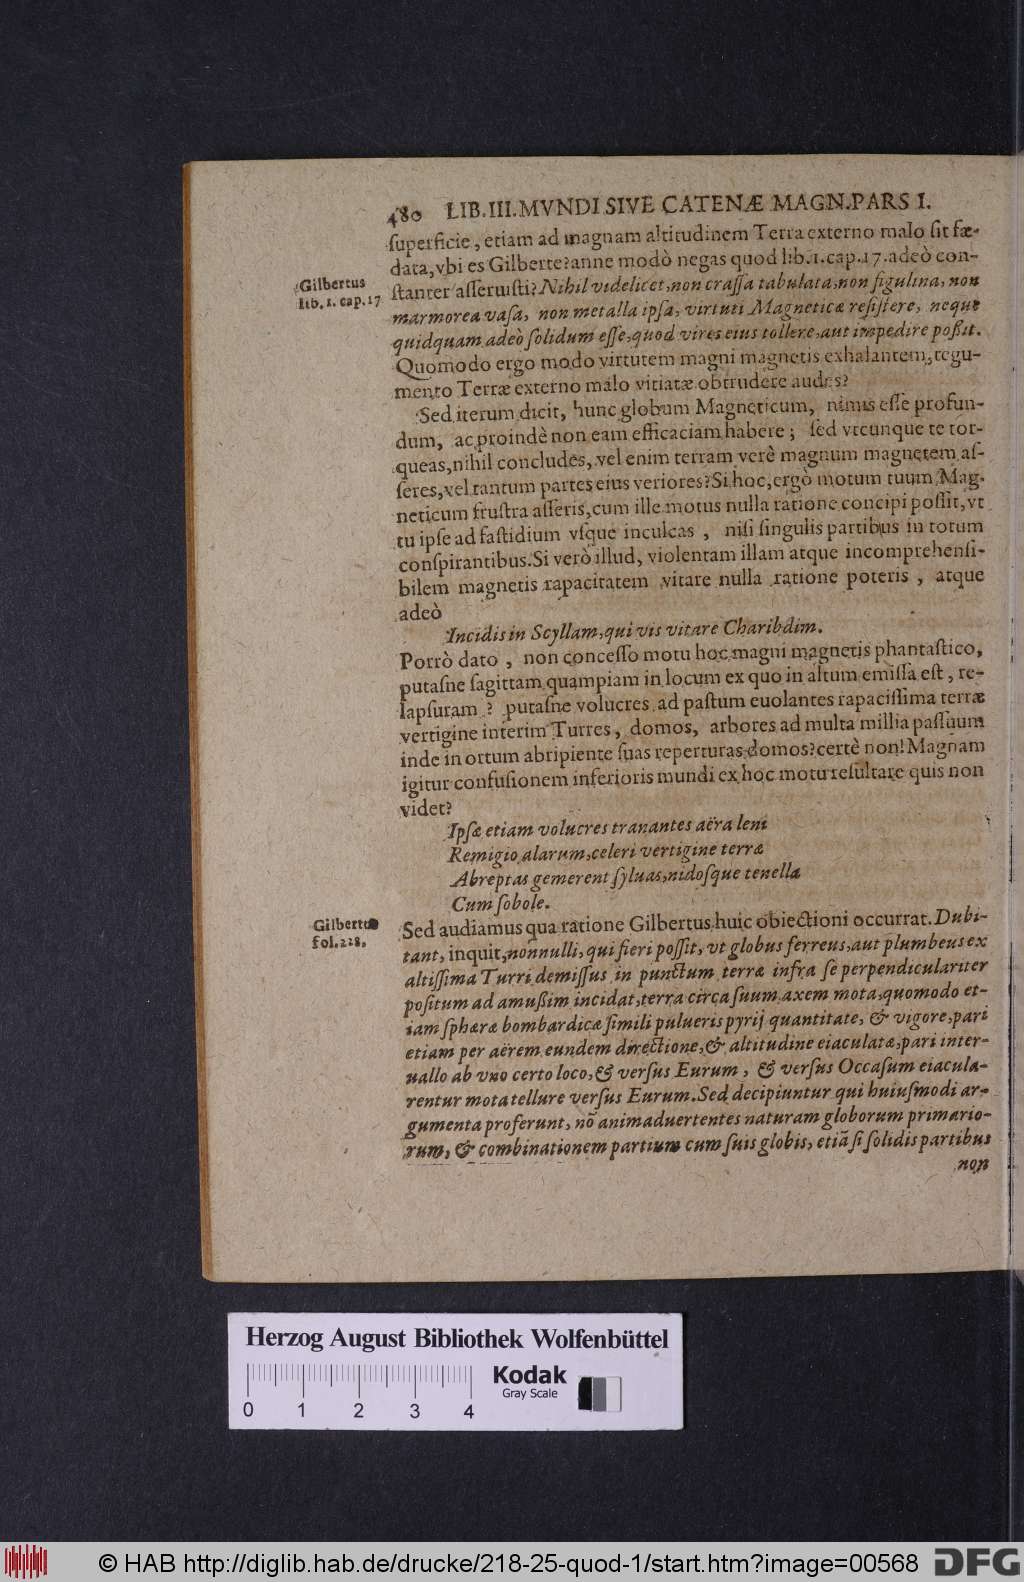 480 LIB.III.MVNDI SIVE CATENÆ MAGN.PARS I.
superficie, etiam ad magnam altitudinem Terra externo malo sit fæ-
data, vbi es Gilberte? anne modò negas quod lib.1.cap.17.adeò con-
Gilbertus
lib. 1. cap. 17
stanter asseruisti? Nihil videlicet, non crassa tabulata, non figulina, non
marmorea vasa, non metalla ipsa, virtuti Magneticæ resistere, neque
quidquam adeò solidum esse, quod vires eius tollere, aut impedire possit.
Quomodo ergo modo virtutem magni magnetis exhalantem, tegu-
mento Terræ externo malo vitiatæ obtrudere audes?
Sed iterum dicit, hunc globum Magneticum, nimis esse profun-
dum, ac proindè non eam efficaciam habere; sed vtcunque te tor-
queas, nihil concludes, vel enim terram verè magnum magnetem as-
seres, vel tantum partes eius veriores? Si hoc, ergò motum tuum Mag-
neticum frustra asseris, cum ille motus nulla ratione concipi possit, vt
tu ipse ad fastidium vsque inculcas, nisi singulis partibus in totum
conspirantibus. Si verò illud, violentam illam atque incomprehensi-
bilem magnetis rapacitatem vitare nulla ratione poteris, atque
adeò
Incidis in Scyllam, qui vis vitare Charibdim.
Porrò dato, non concesso motu hoc magni magnetis phantastico,
putasne sagittam quampiam in locum ex quo in altum emissa est, re-
lapsuram? putasne volucres ad pastum euolantes rapacissima terræ
vertigine interim Turres, domos, arbores ad multa millia passuum
inde in ortum abripiente suas reperturas domos? certè non! Magnam
igitur confusionem inferioris mundi ex hoc motu resultare quis non
videt?
Ipsæ etiam volucres tranantes aëra leni
Remigio alarum, celeri vertigine terræ
Abreptas gemerent syluas, nidosque tenella
Cum sobole.
Gilbertus
fol. 228.
Sed audiamus qua ratione Gilbertus huic obiectioni occurrat. Dubi-
tant, inquit, nonnulli, qui fieri possit, vt globus ferreus, aut plumbeus ex
altissima Turri demissus in punctum terræ infra se perpendiculariter
positum ad amußim incidat, terra circa suum axem mota, quomodo et-
iam sphæræ bombardicæ simili pulueris pyrij quantitate, & vigore, pari
etiam per aërem eundem directione, & altitudine eiaculatæ, pari inter-
uallo ab vno certo loco, & versus Eurum, & versus Occasum eiacula-
rentur mota tellure versus Eurum. Sed decipiuntur qui huiusmodi ar-
gumenta proferunt, nõ animaduertentes naturam globorum primario-
rum, & combinationem partium cum suis globis, etiã si solidis partibus
non
Herzog August Bibliothek Wolfenbüttel
Kodak
Gray Scale
0 1 2 3 4
© HAB http://diglib.hab.de/drucke/218-25-quod-1/start.htm?image=00568
DFG